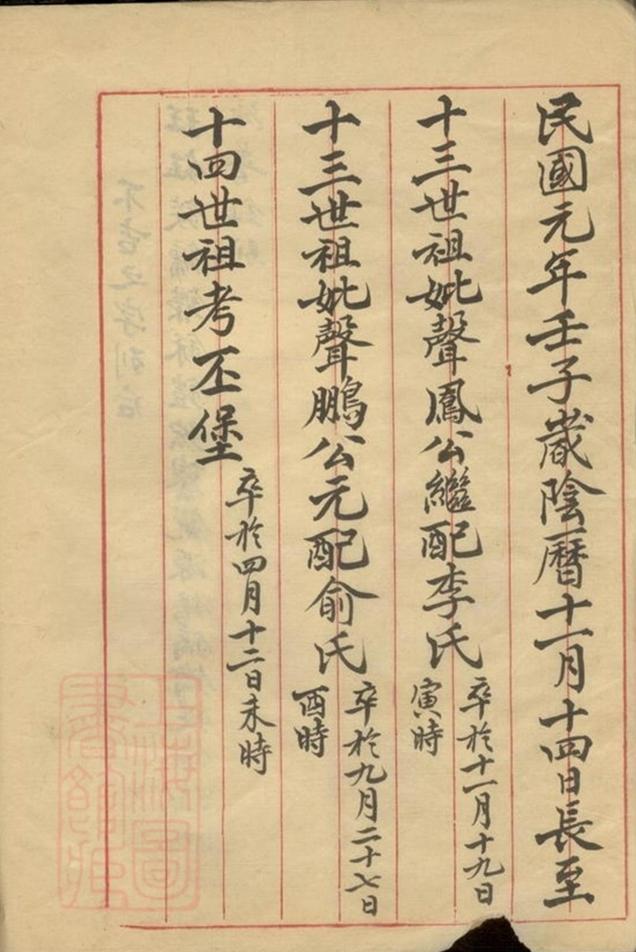 民國元年壬子歲陰曆十一月十四日長至
十三世祖妣聲鳳公繼配李氏
卒於十一月十九日
寅時
十三世祖妣聲鵬公元配俞氏
卒於九月二十七日
酉時
十四世祖考丕堡
卒於四月十二日未時